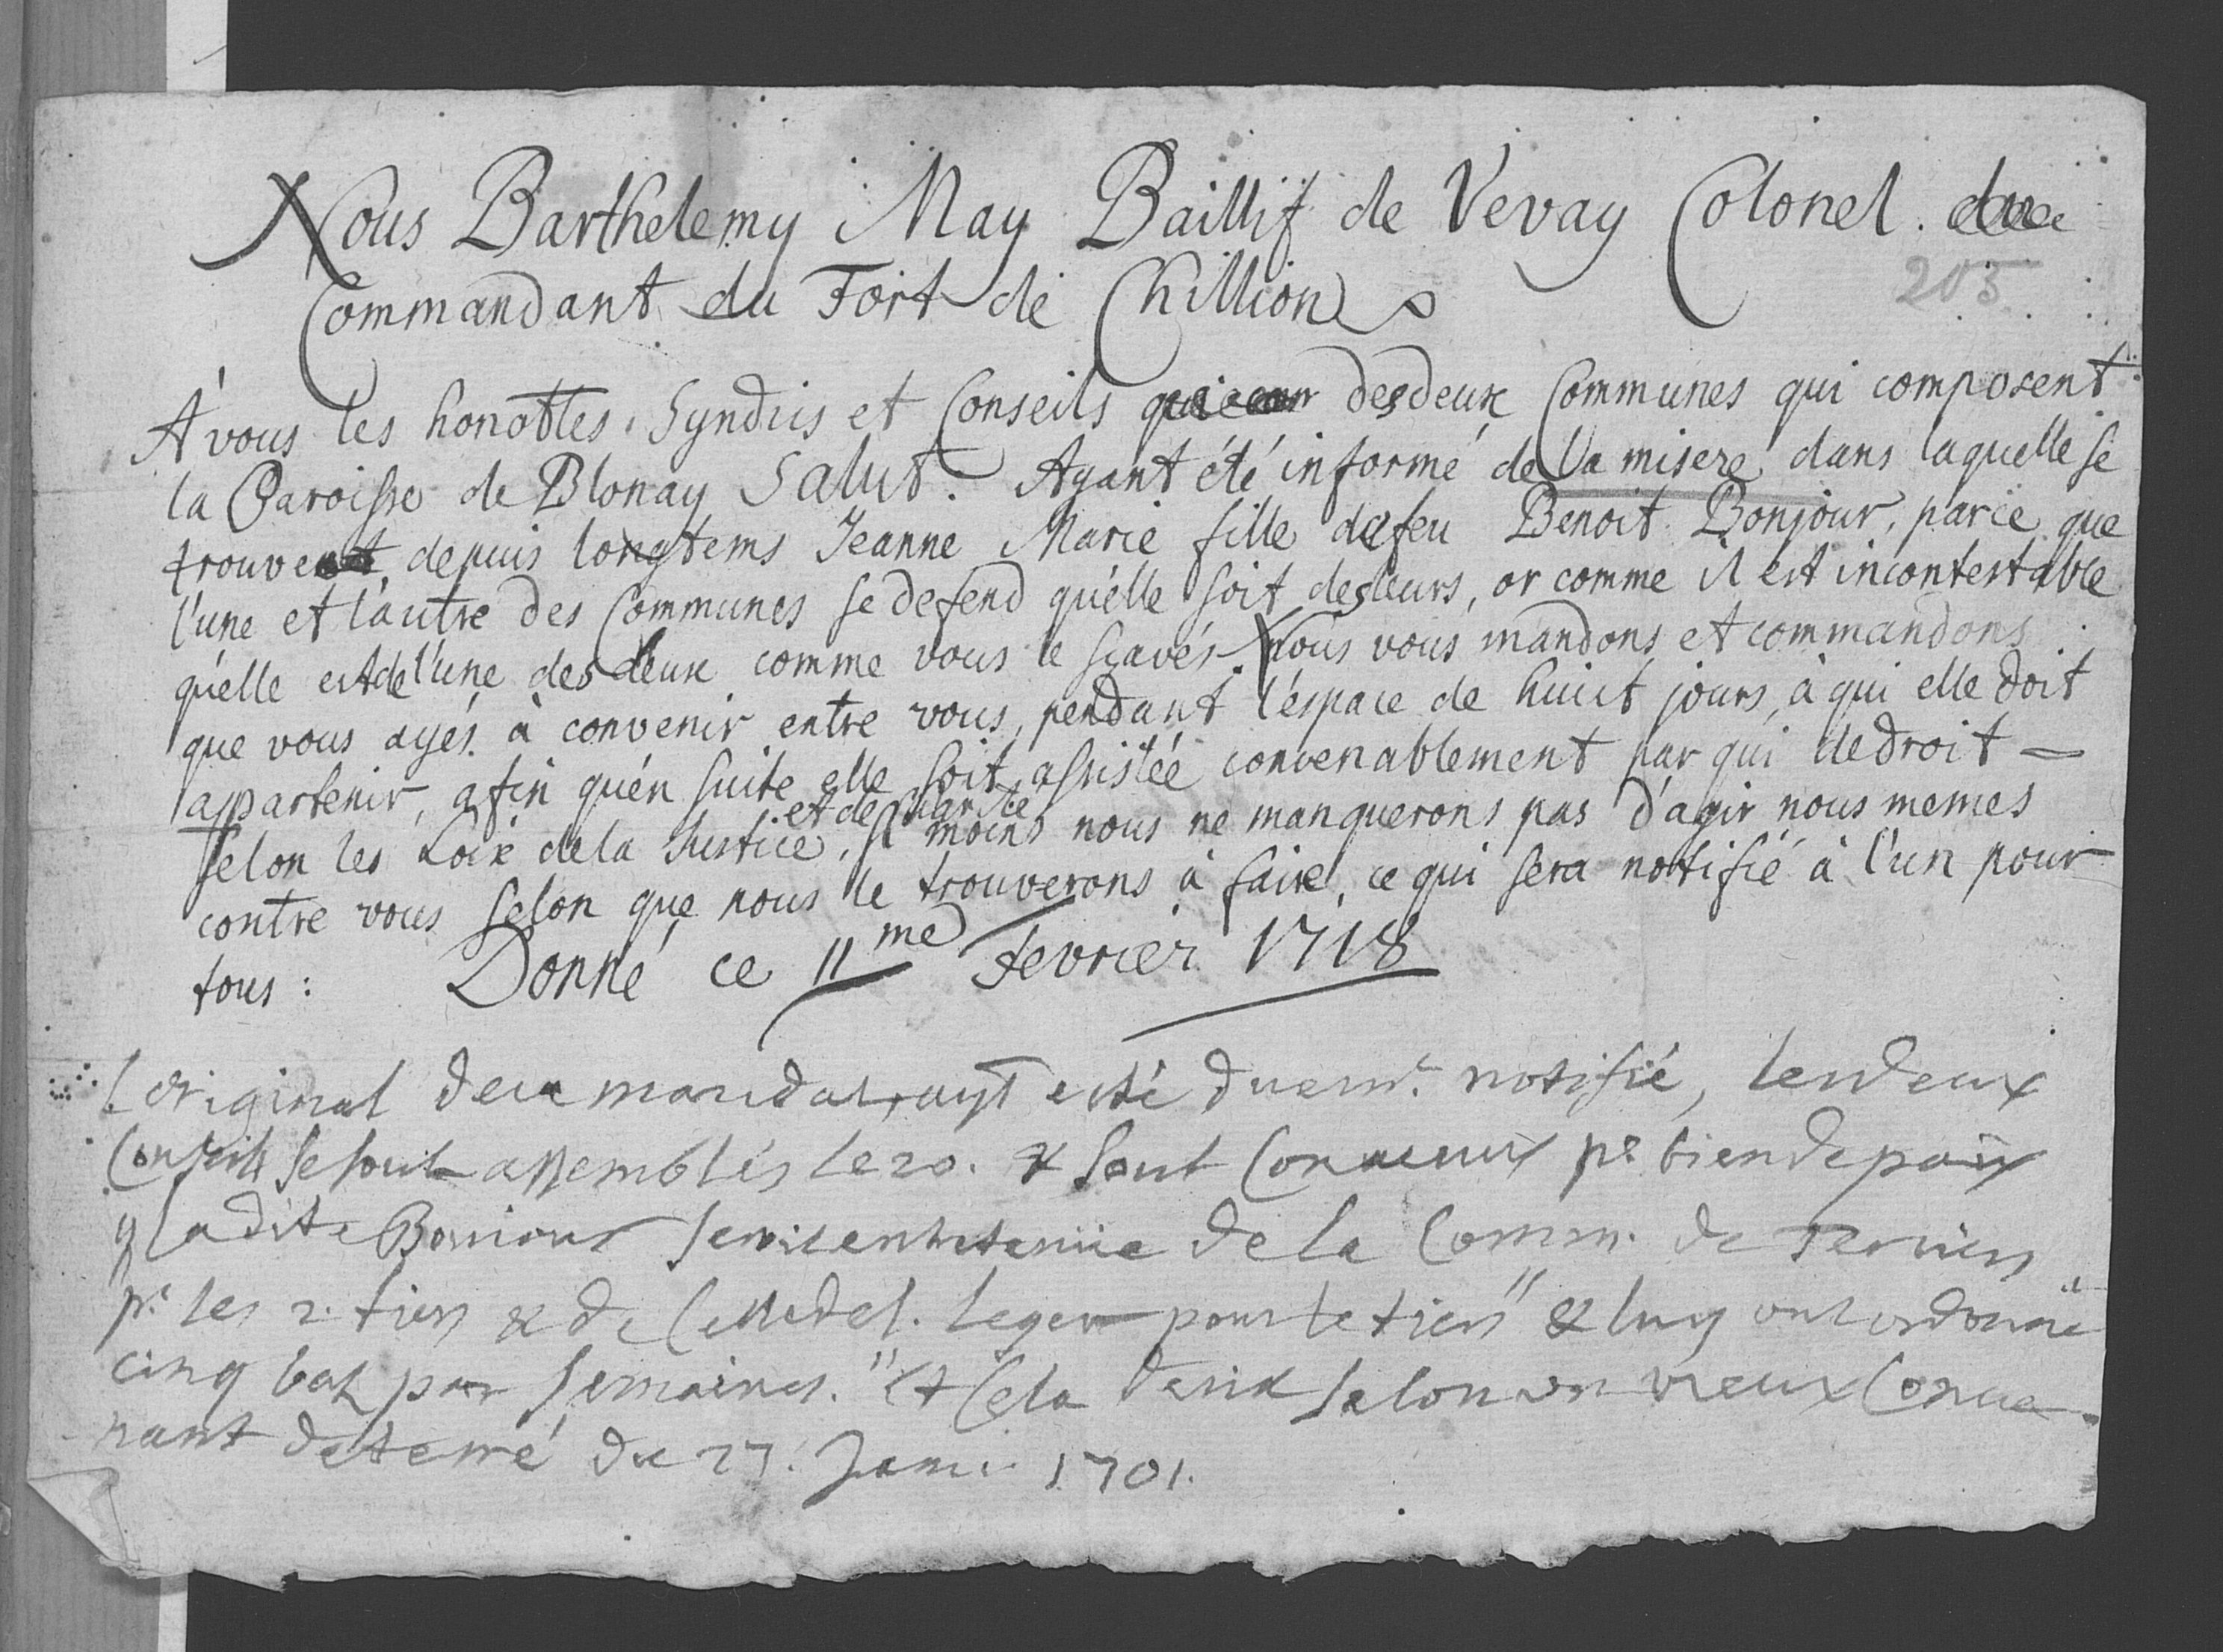 Nous Barthelemy May Baillif de Vevay Colonel
Commandant du Fort de Chillion
205
A vous les honobles Syndics et Conseils des deux Communes qui composent
la Paroisse de Blonay Salut. Ayant été informé de la misere dans laquelle se
trouve depuis longtems Jeanne Marie fille de feu Benoit Bonjour, parce que
l'une et l'autre des Communes se defend qu'elle soit des leurs, or comme il est incontestable
qu'elle est de l'une des deux comme vous le sçavés. Nous vous mandons et commandons
que vous ayés à convenir entre vous, pendant l'espace de huict jours, à qui elle doit
appartenir, afin qu'en suite elle soit assistée convenablement par qui de droit =
selon les Loix de la Justice, et de charité si moins nous ne manquerons pas d'agir nous memes
contre vous selon que nous le trouverons à faire, ce qui sera notifié à l'un pour
tous : Donné ce 11me Fevrier 1718
L'original de ce mandat, ayt esté duem.t notifié, les deux
Conseils se sont assemblés le 20. & sont convenus pr bien de paix
q ladite Bonjour sera entretenüe de la Comm. de
pr les 2. tiers & de celle de St. Leger pour le tiers & luy ont ordonné
cinq batz par semaines. Et cela selon un vieux Conve-
nant deterré du 27. Janvi 1701.